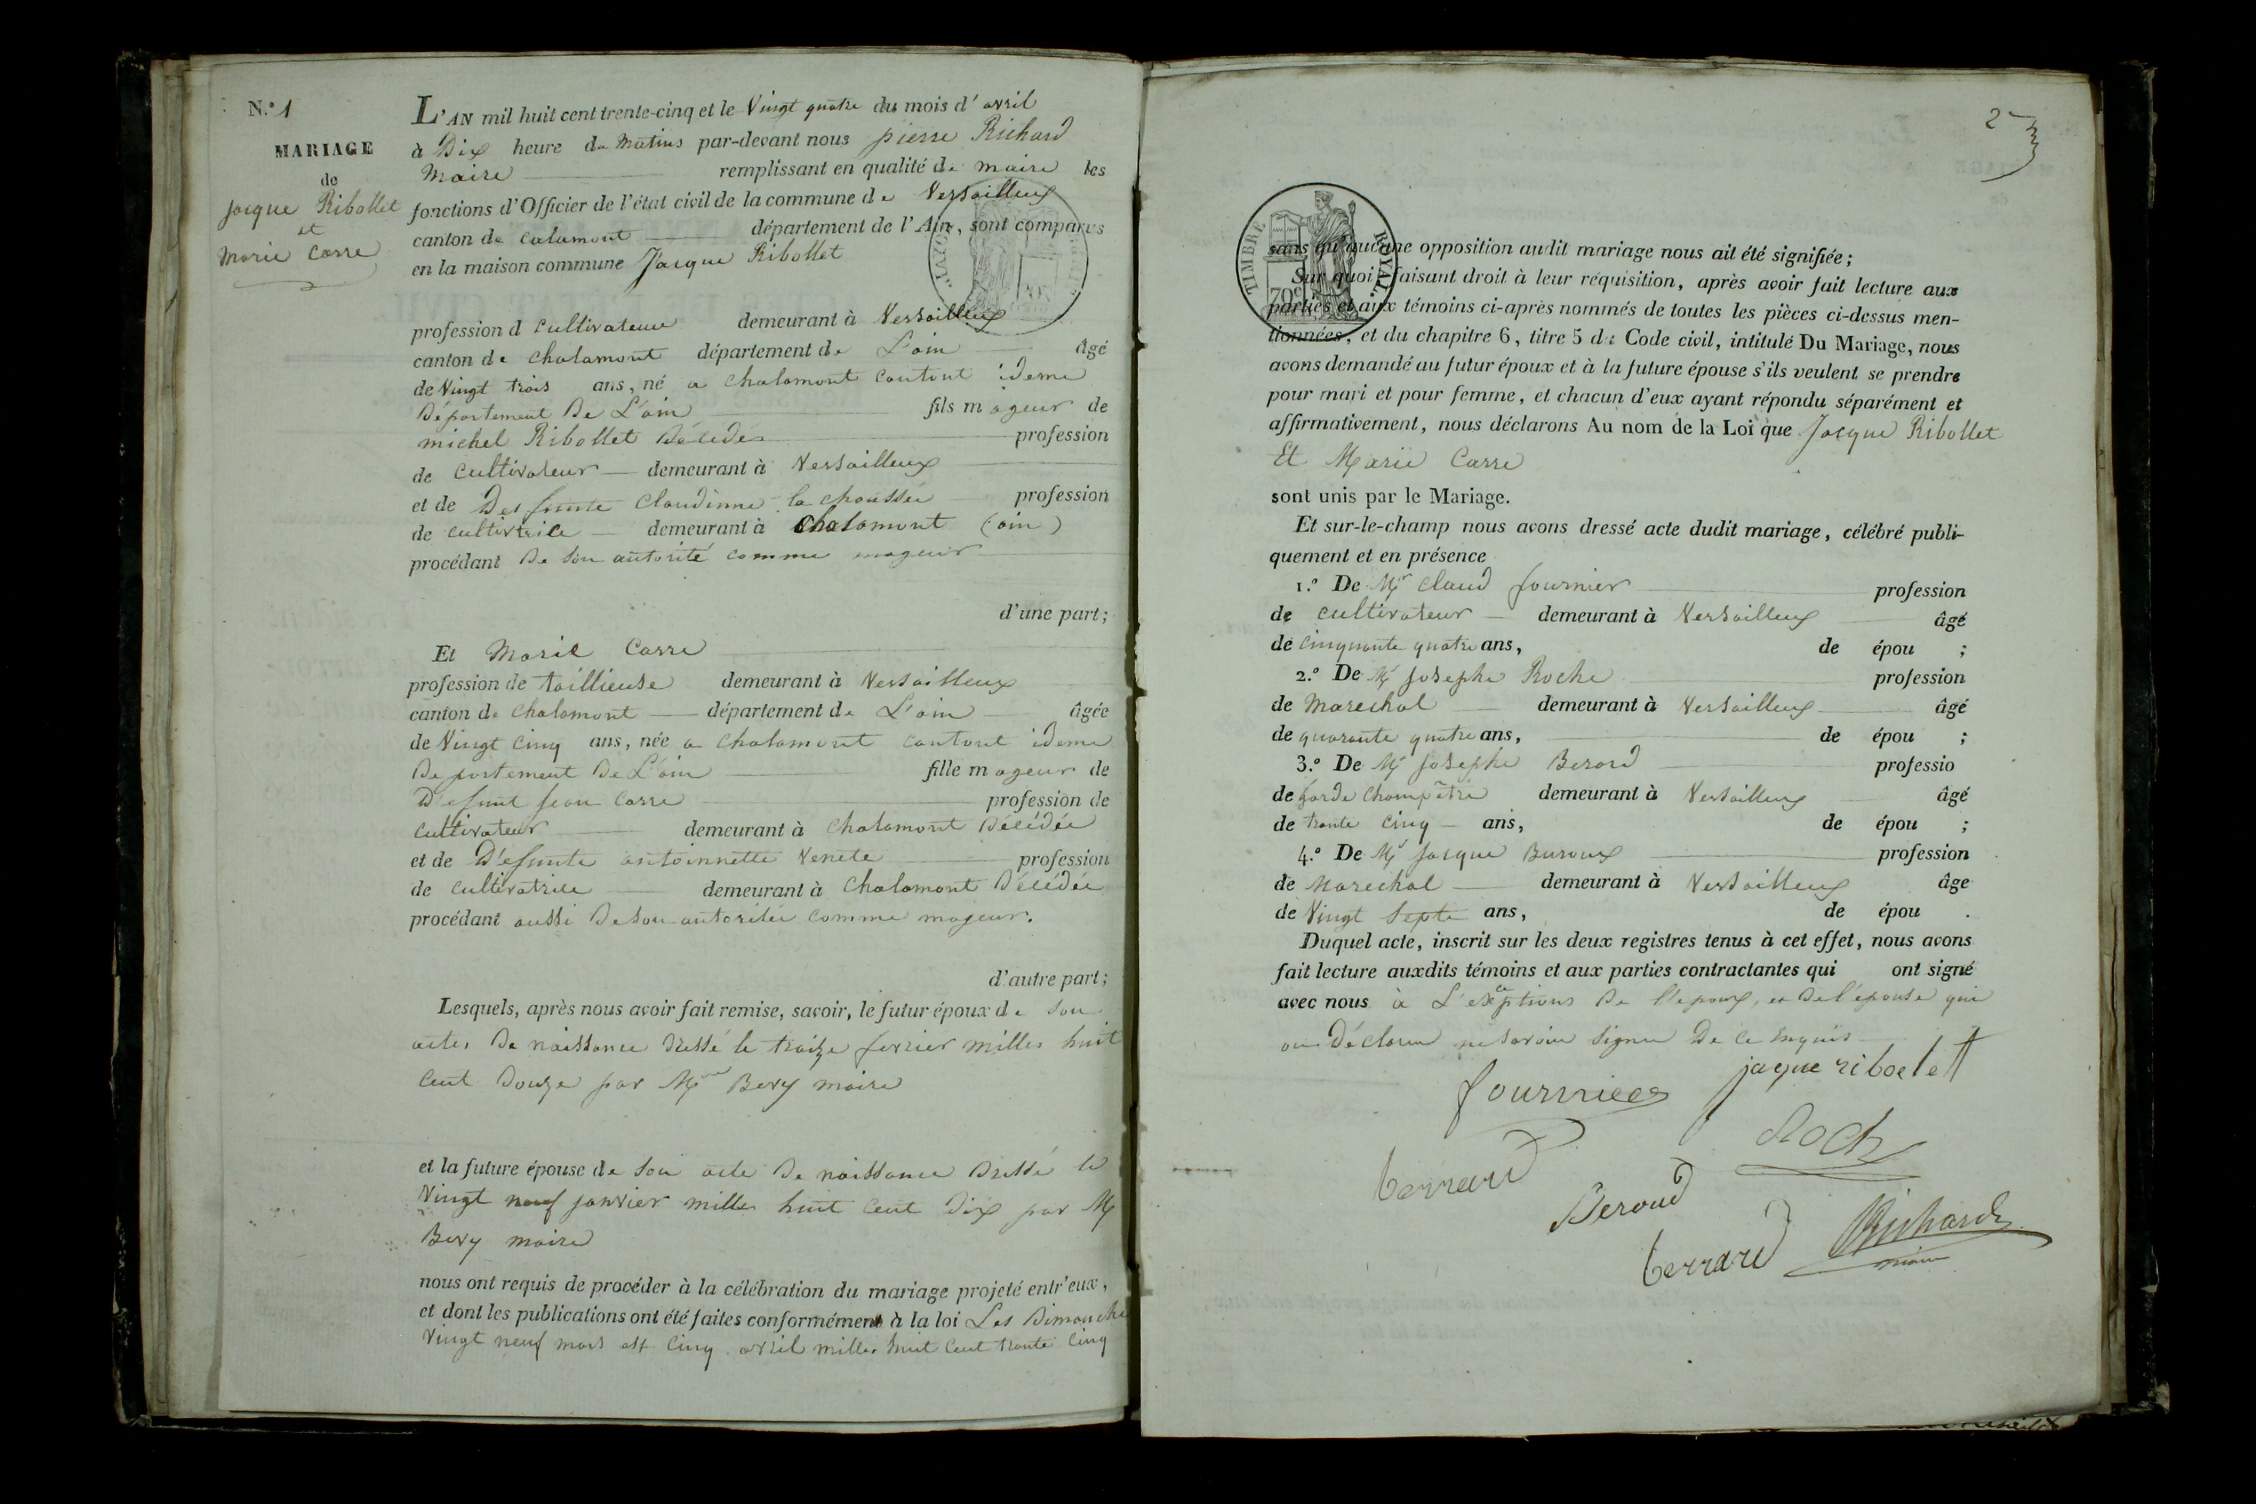 N.º 1
MARIAGE
de
jacque Ribollet
et
marie Carre
L'AN mil huit cent trente-cinq et le Vingt quatre du mois d' avril
à Dix heure du matins par-devant nous pierre Richard
Maire remplissant en qualité de maire les
fonctions d'Officier de l'état civil de la commune de Versailleux
canton de calamont département de l'Ain, sont comparus
en la maison commune Jacque Ribollet
profession d cultivateur demeurant à Versailleux
canton de chalamont département de L'ain âgé
de Vingt trois ans, né a chalamont cantont ideme
Département De L'ain fils mageur de
michel Ribollet Décédés profession
de cultivateur demeurant à Versailleux
et de Desfunte Claudinne la chaussée profession
de cultivtrile demeurant à Chalamont (ain)
procédant De son autorité comme mageur
d'une part;
Et Marie Carre
profession de taillieuse demeurant à Versailleux
canton de chalamont département de L'ain âgée
de Vingt Cinq ans, née a chalamont cantont ideme
Departement De L'ain fille mageur de
D'efunt jean Carre profession de
cultivateur demeurant à chalamont Décédée
et de D'efunte antoinnette Venete profession
de cultivatrice demeurant à chalamont Décédée
procédant aussi De son autoritée comme mageur.
d'autre part;
Lesquels, après nous avoir fait remise, savoir, le futur époux de son
actes De naissance Dressé le traize fevrier milles huit
Cent Douze par Mr Bery maire
et la future épouse de son acte De naissance Dressé le
Vingt neuf janvier milles huit Cent Dix par Mr
Bery maire
nous ont requis de procéder à la célébration du mariage projeté entr'eux,
et dont les publications ont été faites conformément à la loi Les Dimanche
Vingt neuf mars est Cinq avril milles huit Cent trante Cinq
2
TIMBRE ROYAL
70 c
sans qu'aucune opposition audit mariage nous ait été signifiée;
Sur quoi, faisant droit à leur réquisition, après avoir fait lecture aux
parties et aux témoins ci-après nommés de toutes les pièces ci-dessus men-
tionnées, et du chapitre 6, titre 5 du Code civil, intitulé Du Mariage, nous
avons demandé au futur époux et à la future épouse s'ils veulent se prendre
pour mari et pour femme, et chacun d'eux ayant répondu séparément et
affirmativement, nous déclarons Au nom de la Loi que Jacque Ribollet
Et Marie Carre
sont unis par le Mariage.
Et sur-le-champ nous avons dressé acte dudit mariage, célébré publi-
quement et en présence
1.º De Mr Claud fournier profession
de cultivateur demeurant à Versailleux âgé
de Cinquante quatre ans, de épou ;
2.º De Mr Josephe Roche profession
de Marechal demeurant à Versailleux âgé
de quarante quatre ans, de épou ;
3.º De Mr Josephe Berard professio
de garde champêtre demeurant à Versailleux âgé
de trante Cinq ans, de épou ;
4.º De Mr Jacque Buroux profession
de Marechal demeurant à Versailleux âge
de Vingt Septe ans, de épou .
Duquel acte, inscrit sur les deux registres tenus à cet effet, nous avons
fait lecture auxdits témoins et aux parties contractantes qui ont signé
avec nous à L'exceptions De l'epoux, et De l'épouse qui
on Déclaru ne savoir signer De ce enquis
jaque riboelett
fournieer
Roch
berrard
Beroud
berrard
Richard
maire